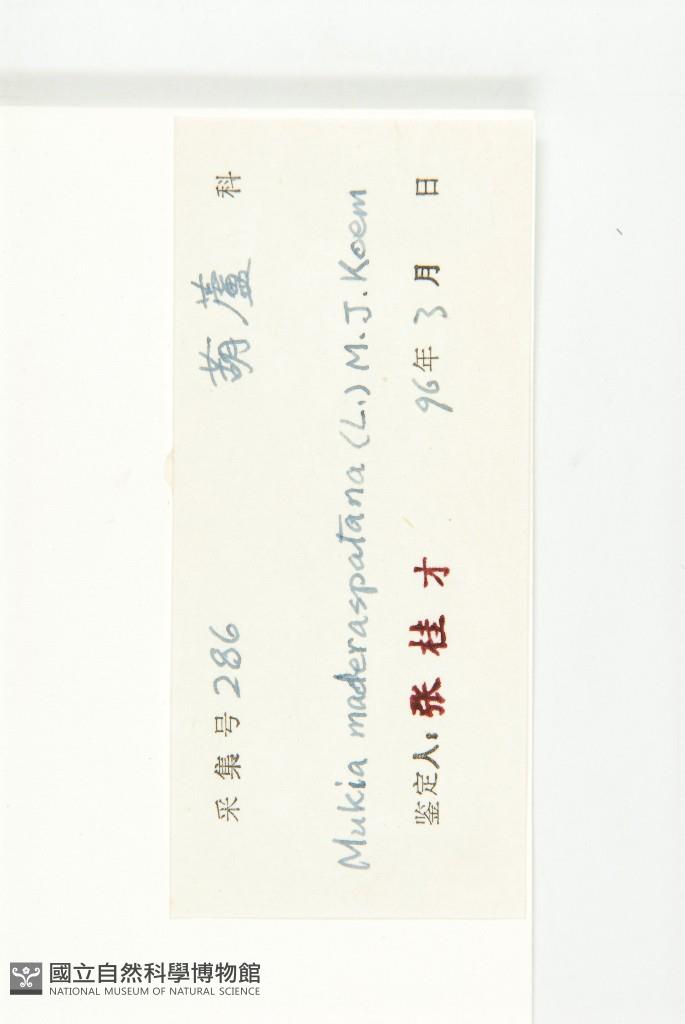 采集号 286 葫蘆 科
Mukia maderaspatana (L.) M.J. Koem
鉴定人: 张桂才 96年 3月 日
國立自然科學博物館
NATIONAL MUSEUM OF NATURAL SCIENCE